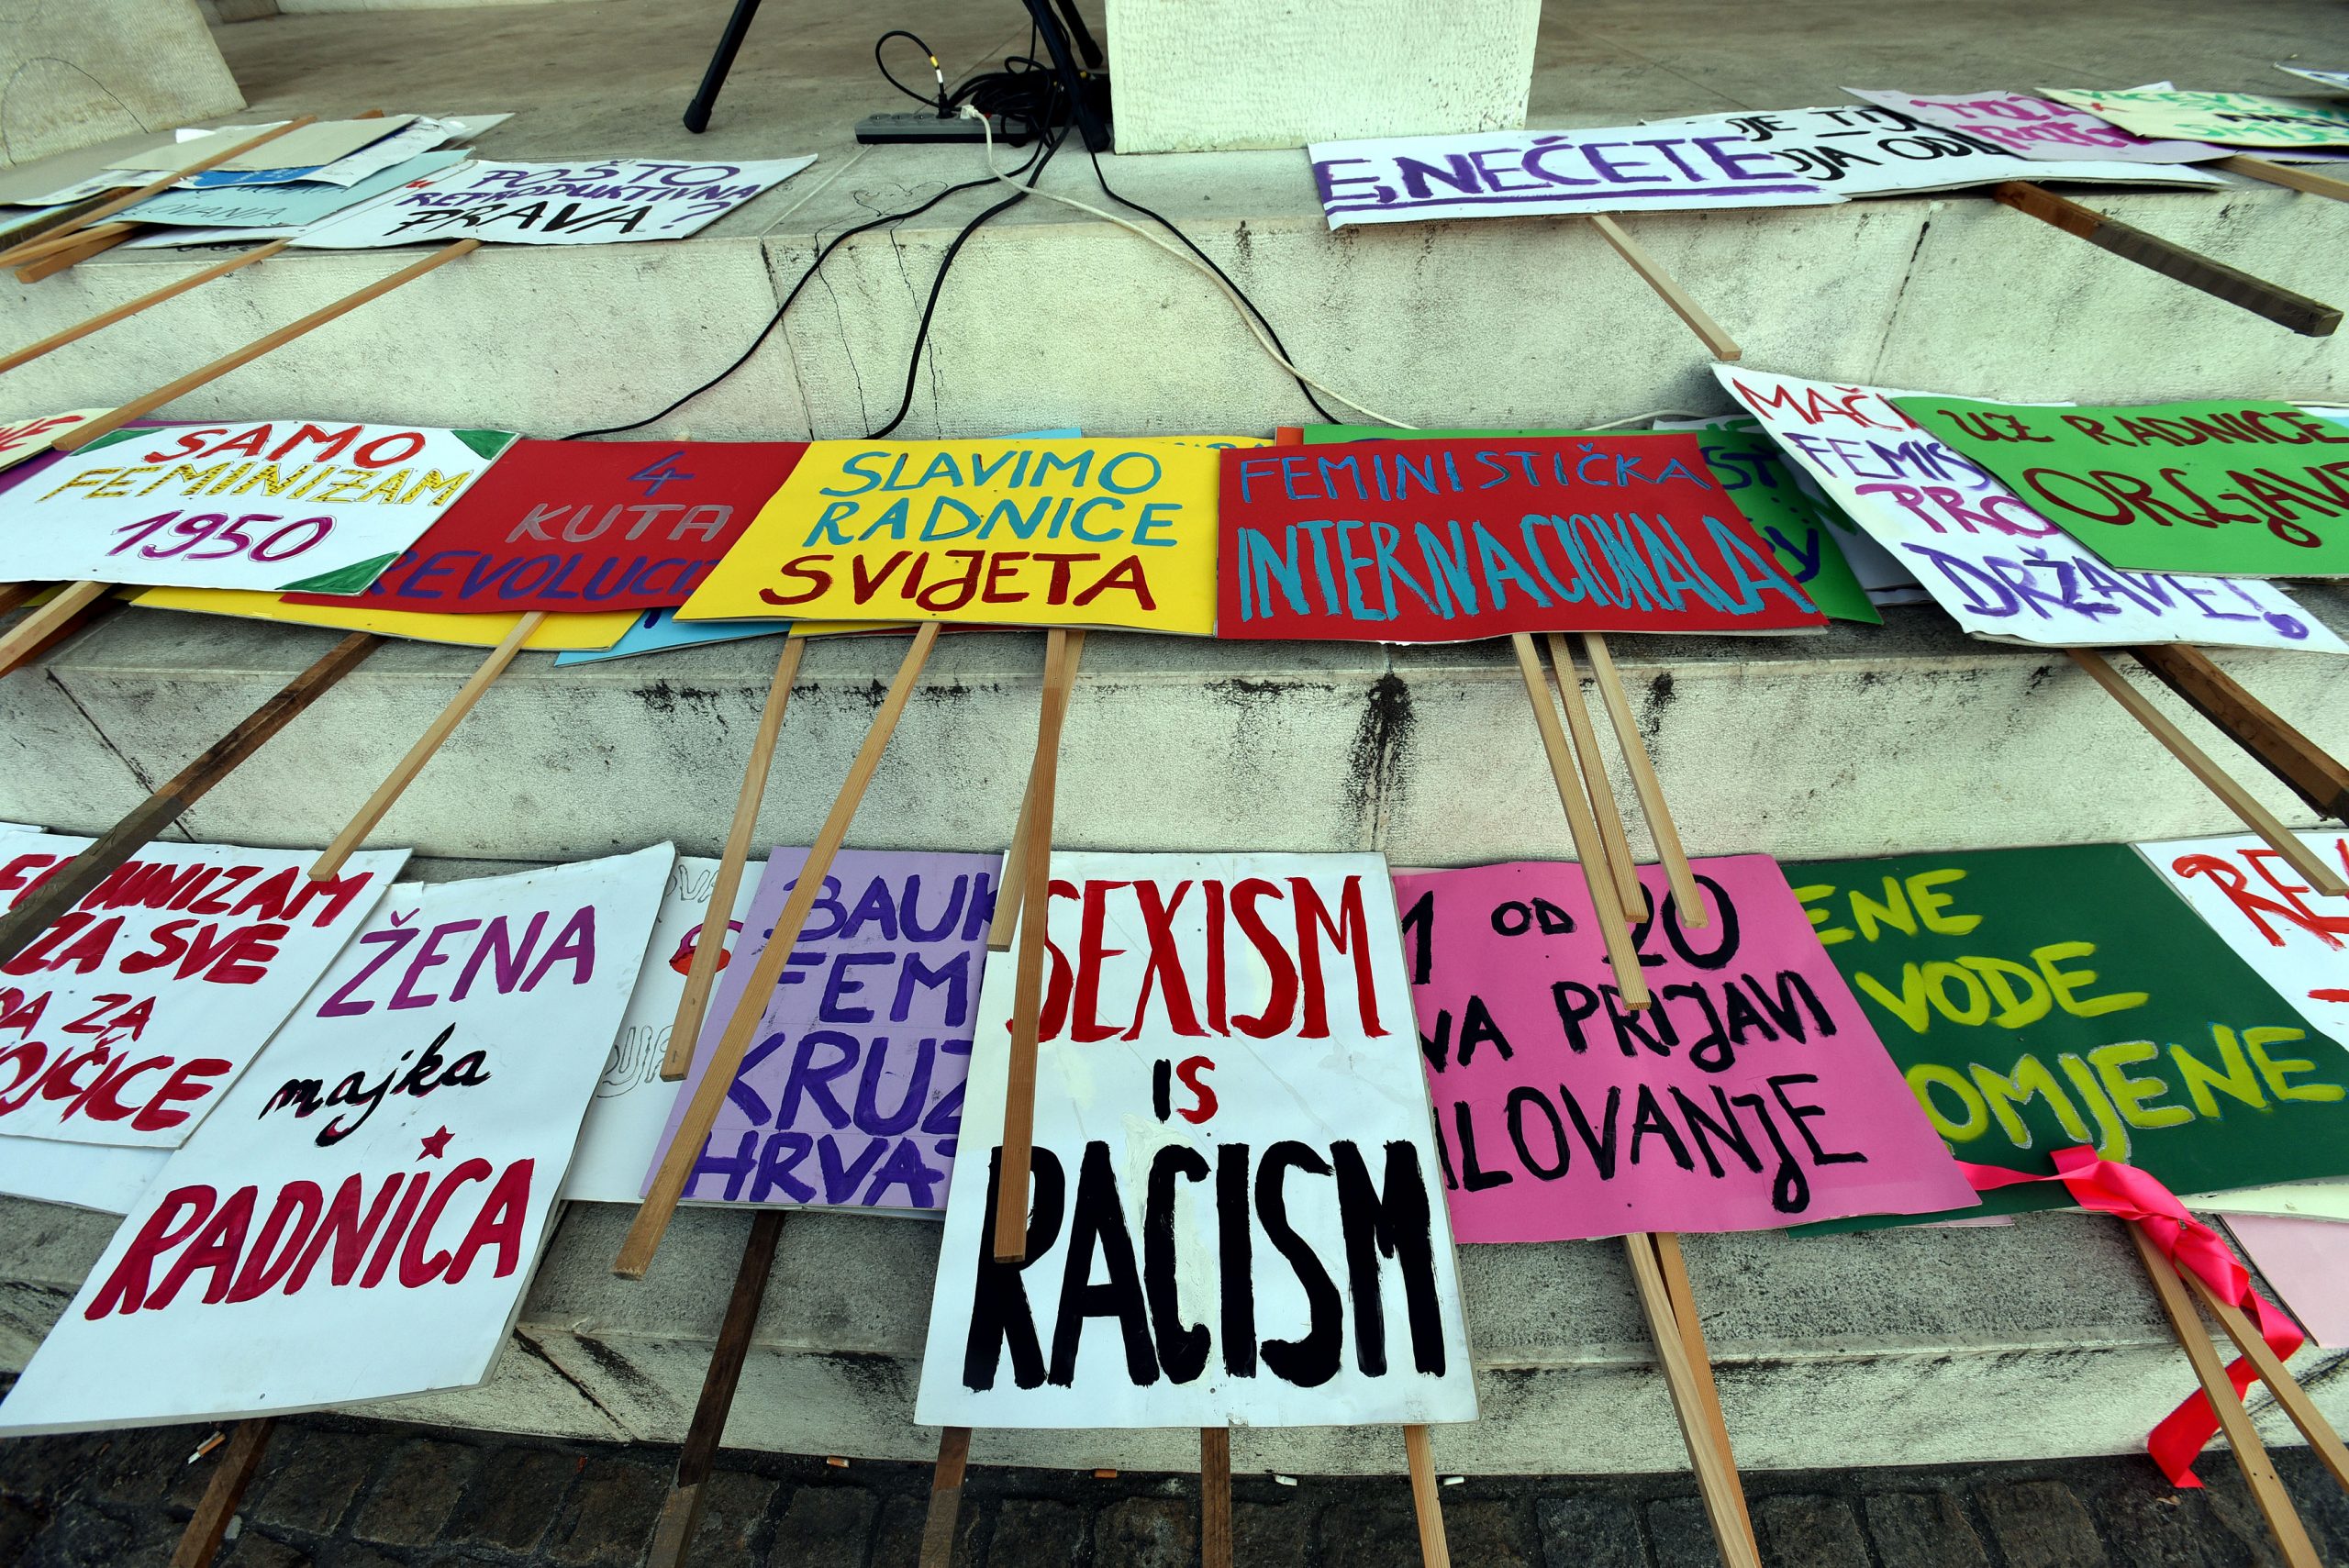 POŠTO
REPRODUKTIVNA
PRAVA?
E, NEĆETE
JE TI
SAMO
FEMINIZAM
1950
4
KUTA
REVOLUCI
SLAVIMO
RADNICE
SVIJETA
FEMINISTIČKA
INTERNACIONALA
MAČ
FEMIS
PRO
DRŽAVE!
UZ RADNICE
ORLJAVE
FEMINIZAM
ZA SVE
BA ZA
OJČICE
ŽENA
majka
RADNICA
BAUK
FEM
KRUŽ
HRVA
SEXISM
IS
RACISM
1 OD 20
VA PRIJAVI
ILOVANJE
ENE
VODE
OMJENE
RE